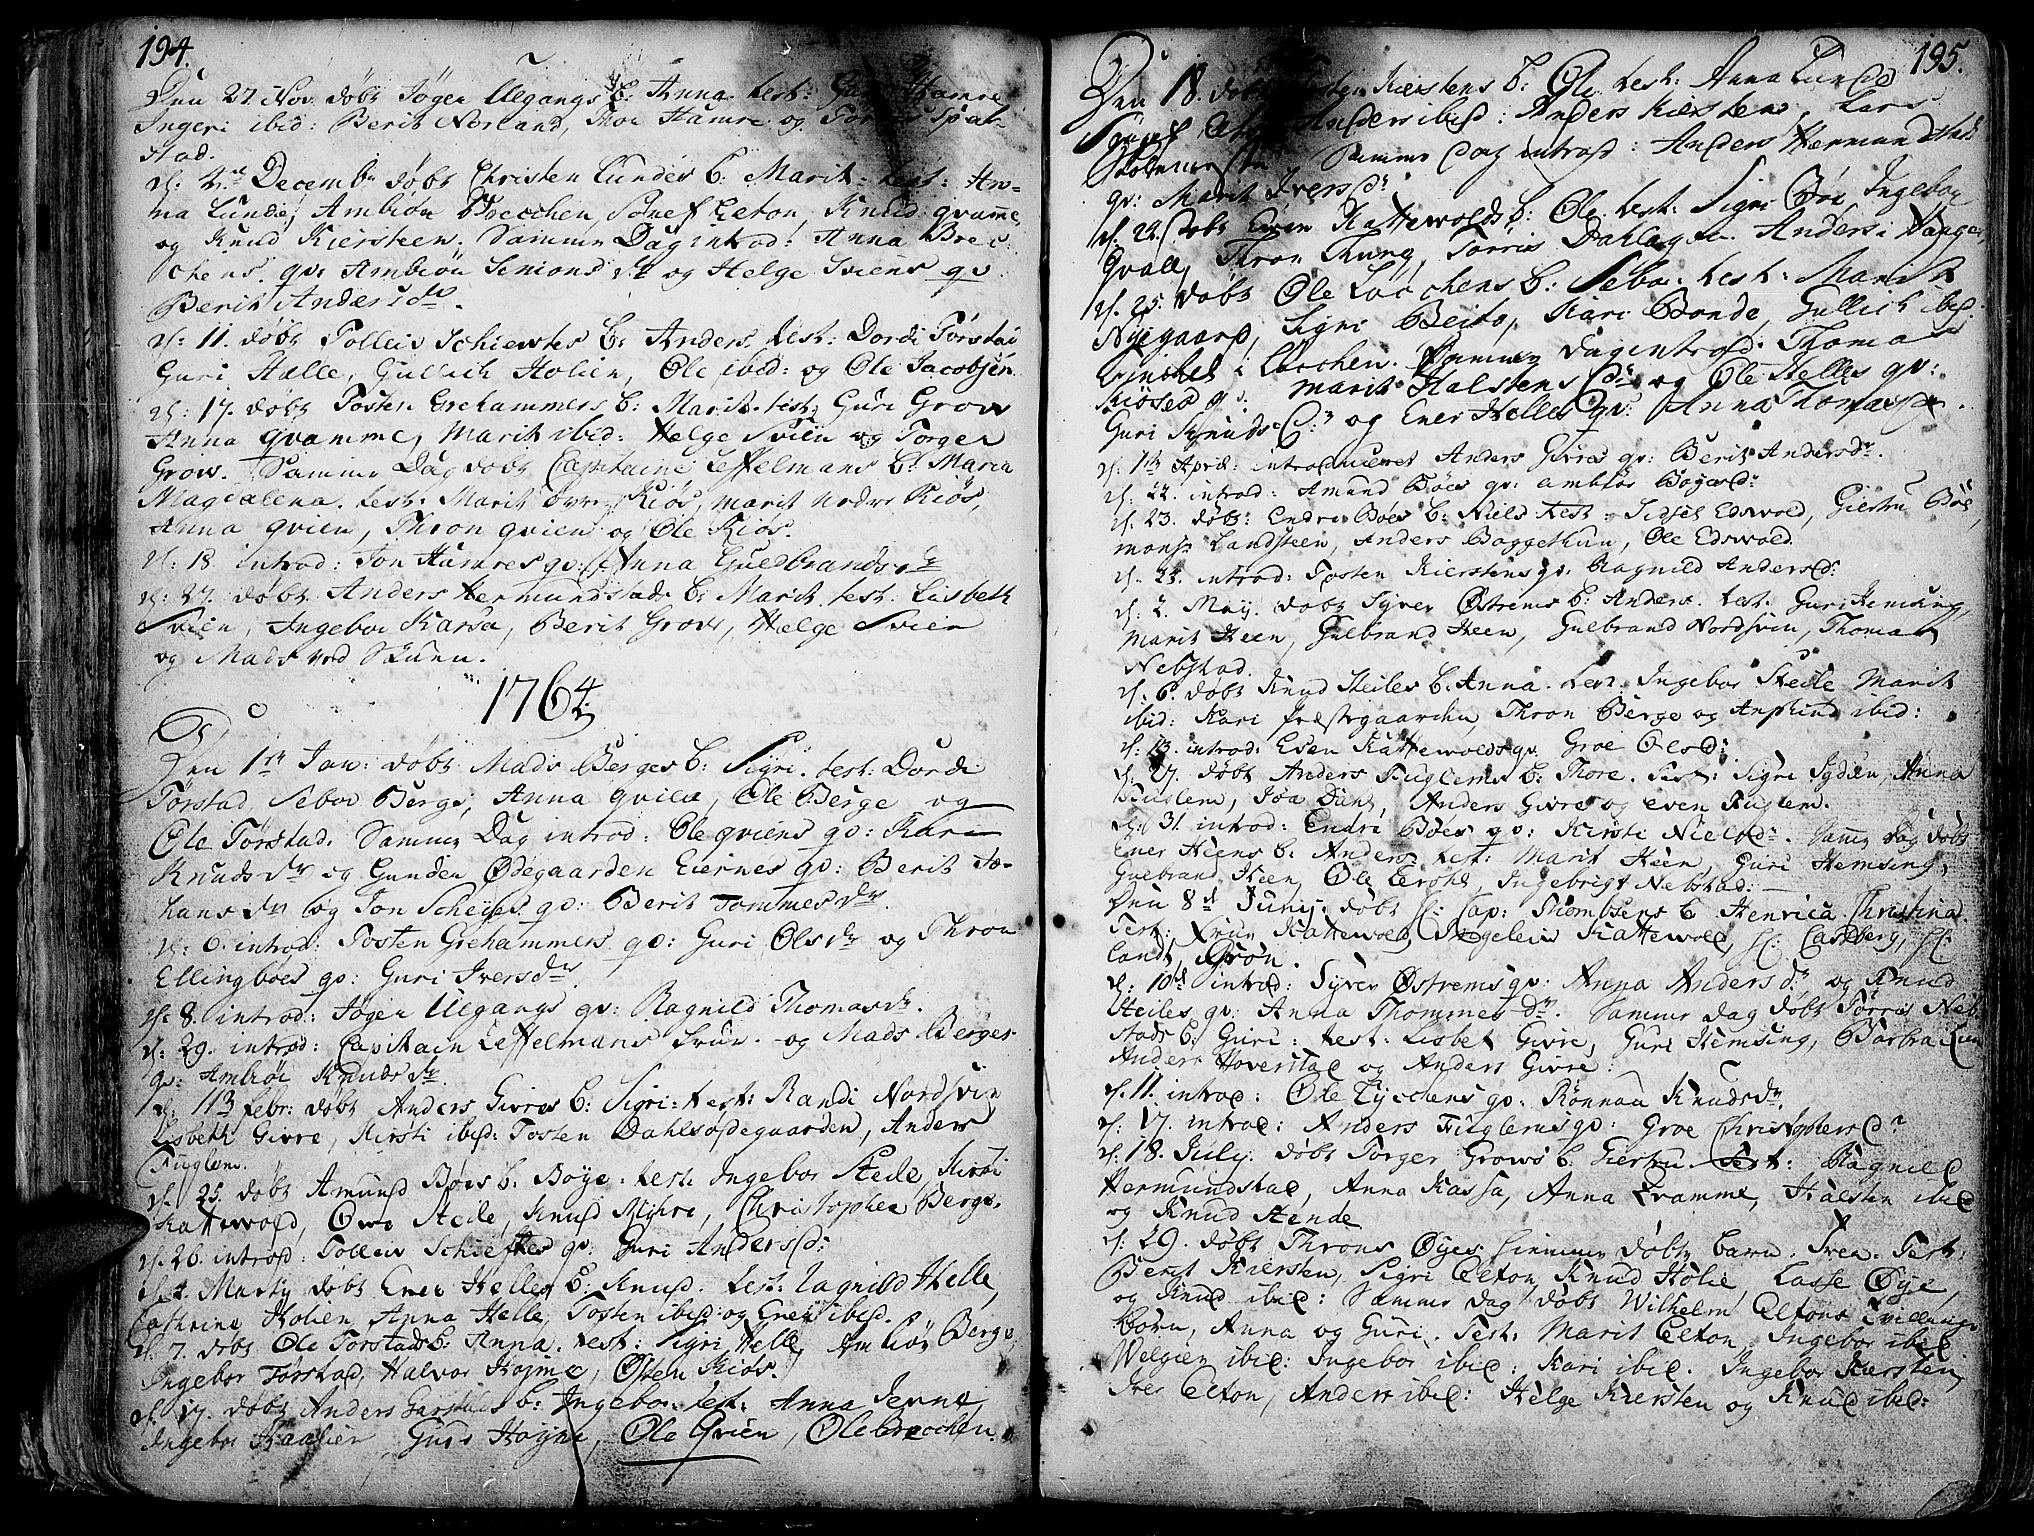 194.
Den 27. Nov. døbt Jøger Ulegangs b: Anna. test: Hamre
Ingeri ibid: Berit Norland, Hamre og
stad.
d: 4de Decemb: døbt Christen Lundes b: Marit. test: An-
na Lunde, Ambiør Brecchen, Elton, Knud qvamme,
og Knud Kiersteen. Samme Dag introd: Anna Brec-
chens qv: Ambiør Simonsdr og Helge Sviens qv
Berit Andersdr.
d: 11. døbt Tollein Schieftes b: Anders. test: Dordi Tørstad
Guri Hælle, Gullich Holien, Ole ibid: og Ole Jacobsen.
d: 17. døbt Tosten Grehammers b: Marit. test: Guri Grow
Anna qvamme, Marit ibid: Helge Svien og Torger
Grow. Samme Dag døbt Capitaine Leffelmans b: Maria
Magdalena. test: Marit øvre Kiøs, Marit nedre Kiøs,
Anna qvien, Thron qvien og Ole Kiøs.
d: 18. introd: Jon Hamres qv: Anna Guldbrandsdr
d: 27. døbt Anders Hermundstads b: Marit. test: Lisbeth
Svien, Ingebor Karsa, Berit Grow, Helge Svien
og Mads ved Skuen.
1764
Den 1ste Jan: døbt Mads Berges b: Sigri. test: Dordi
Tørstad, Sebor Berge, Anna qvien, Ole Berge og
Ole Tørstad. Samme Dag introd: Ole qviens qv: Kari
Knudsdr og Gunder Ødegaarden Eiernes qv: Berit Jo-
hansdr og Jon Scheyes qv: Berit Tommesdr.
d: 6. introd: Tosten Grehammers qv: Guri Olsdr og Thron
Ellingboes qv: Guri Iversdr
d: 8. introd: Jøger Ulegangs qv: Ragnild Thomasdr.
d: 29. introd: Capitain Leffelmans Frue. og Mads Berges
qv: Ambiør Knudsdr.
d: 11te Febr: døbt Anders Givres b: Sigri: test: Randi Nordsvin
Lisbeth Givre, Kirsti ibid: Tosten Dahlsødegaarden, Anders
Fuglem.
d: 25. døbt Amund Bøes b: Boye. test: Ingebor Steile, Kirsti
Kattevold, Steile, Knud Myhre, Christopher Berge.
d: 26. introd: Tollein Schieftes qv: Guri Andersd:
d: 4. Marty døbt Ener Helles b: Knud. test: Ragnild Helle,
Cathrine Holien, Anna Helle, Tosten ibid: og Ener ibid.
d: 7. døbt Ole Torstads b: Anna. test: Sigri Helle, Ambiør Berge,
Ingebor Tørstad, Halvor Høyme, Østen Kiøs.
d: 17. døbt Anders Garstads b: Ingebor. test: Anna Jenne,
Ingebor Guri Høyme, Ole Qvien, Ole Brecchen.
195.
Den 18. døbt Tosten Kierstens b: Ole. test: Anna Lunde
Anders ibid: Anders Kiersten, Lars
Samme Dag introd: Anders Hermundstads
qv: Marit Iversdr:
d: 22. døbt Even Kattevolds b: Ole. test: Sigri Bøe, Ingebor
Qvall, Thron Thung, Torris Dahlsgne. Anders i Vangen
d. 25. døbt Ole Loechens b: Sebor. test: Marit
Nygaard, Sigri Beito, Kari Bonde, Gullich ibid:
i Loechen. Samme Dag introd: Thomas
Kiøs qv: Marit Halstensdr og Ole Helles qv:
Guri Knudsdr og Ener Helles qv: Anna Thomasdr.
d: 1ste April: introduceret Anders Givres qv: Berit Andersdr.
d: 22. introd: Amund Bøes qv: Ambiør Boyesd:
d. 23. døbt: Endre Bøes b: Niels test: Sidsel Edsvold, Giertru Bøe,
Monsr Landsteen, Anders Baggethun, Ole Edsvold.
d. 24. introd: Tosten Kierstens qv: Ragnild Andersd:
d: 2. May. døbt Syver Østrems b: Anders. test: Guri Hemsing,
Marit Heen, Gulbrand Heen, Gulbrand Nordsvin, Thomas
Nebstad.
d: 6. døbt Knud Steiles b: Anna. test. Ingebor Steile Marit
ibid: Kari Præstegaarden, Thron Berge og Amund ibid:
d: 13. introd: Even Kattevolds qv Groe Olsd:
d. 27. døbt Anders Fuglems b: Thore. test: Sigri Sydæn, Anna
Fuglem, Joa Dahl, Anders Givre og Even Fuglem.
d: 31. introd: Endre Bøes qv: Kirsti Nielsdr. Samme Dag døbt
Ener Heens b: Anders. test: Marit Heen, Guri Hemsing,
Gulbrand Heen, Ole Ingebrigt Nebstad:
Den 8de Junij. døbt Hr: Cap: Thombsens b: Henrica Christina.
Test: Frue Kattevold, Frøgelein Kattevold, Hr: Castberg, Hr:
Landt, Grøn.
d: 10de introd: Syver Østrems qv: Anna Andersdr og Knud
Steiles qv: Anna Thommesdr. Samme Dag døbt Torris Neb-
stads b: Guri: test: Lisbet Givre, Guri Hemsing, Barbra Lien
Anders Hoverstad og Anders Givre:
d. 11. introd: Ole Lycchens qv: Rønnau Knudsdr.
d. 17. introd: Anders Fuglems qv: Groe Christophersdr
d: 18. July. døbt Torger Grows b: Giertru. Test: Ragnild
Hermundstad, Anna Kassa, Anna Qvamme, Halsten ibid
og Knud Hende
d: 29. døbt Throns Øyes hiemme døbte barn. Iver. Test:
Berit Kiersten, Sigri Elton, Knud Holie, Lasse Øye
og Knud ibid: Samme Dag døbt Wilhelm Eltons Tvillinge
børn, Anna og Guri. Test: Marit Elton, Ingebor ibid
Welgien ibid: Ingebor ibid: Kari ibid. Ingebor Kiersten,
Iver Elton, Anders ibid: Helge Kiersten og Knud ibid: